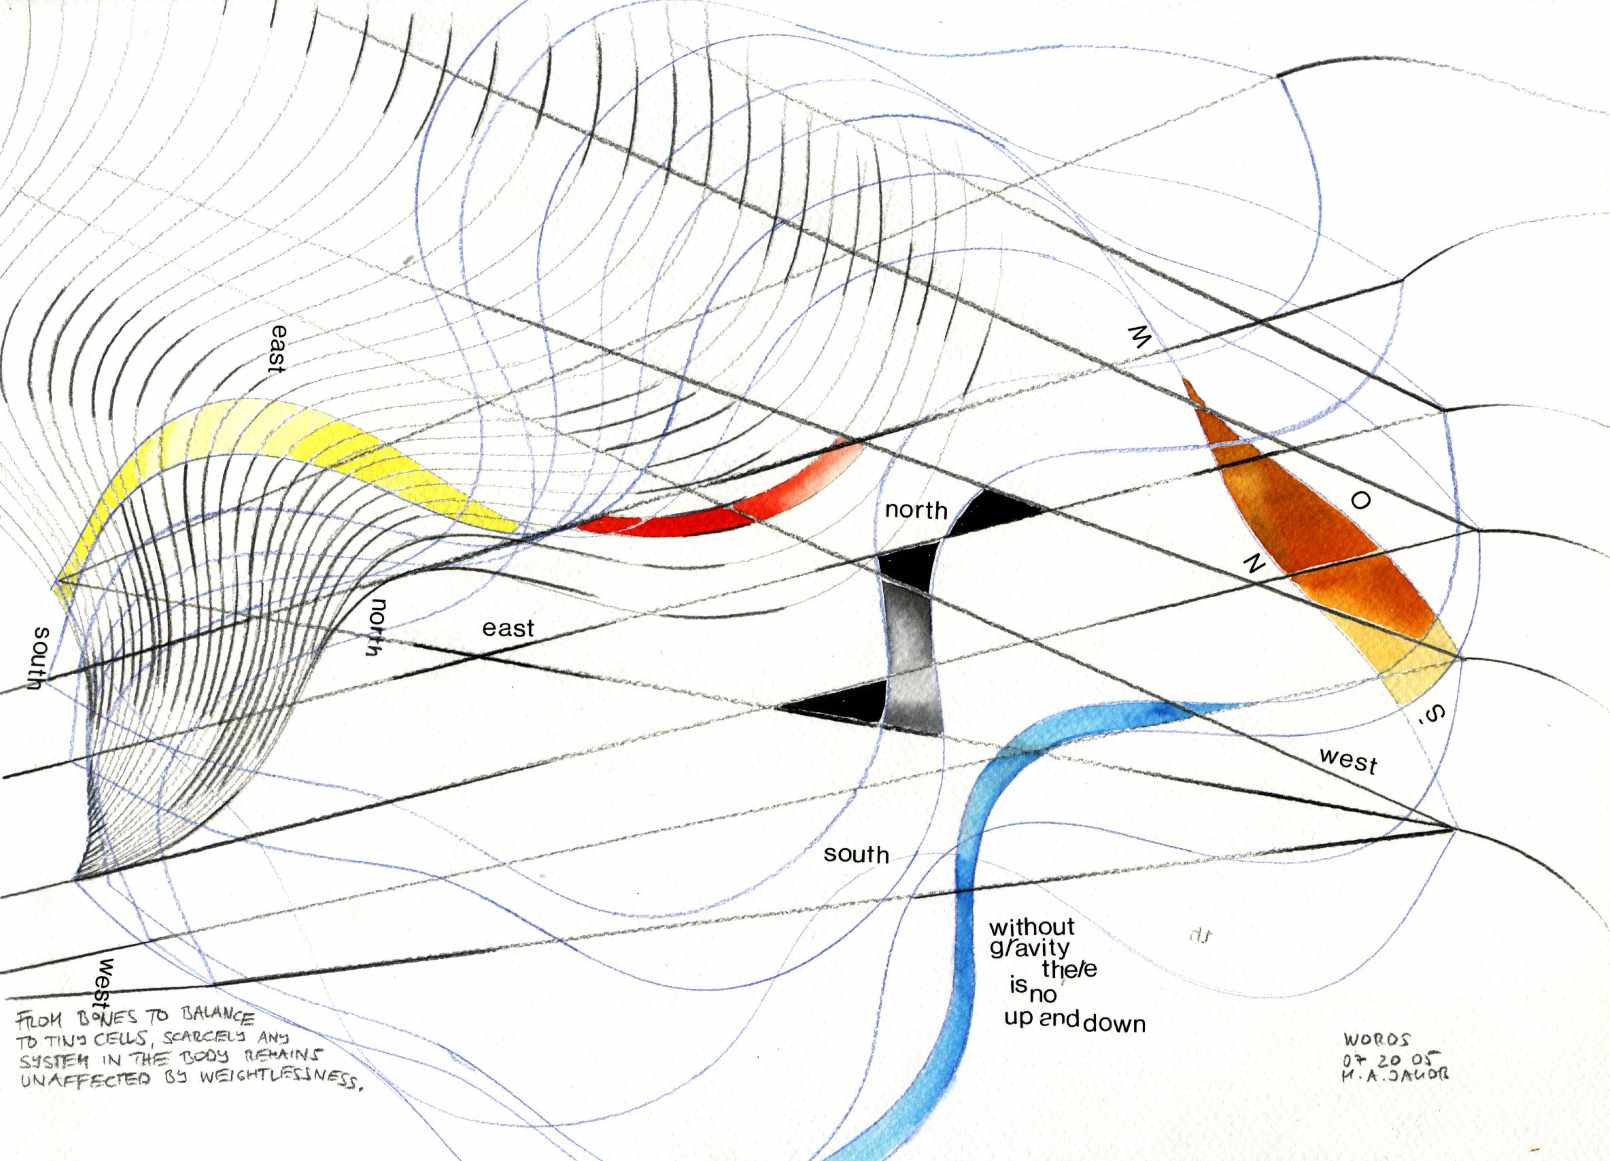 east
W
O
north
N
north
east
south
S.
west
south
without
gravity
there
is no
up and down
th
west
FROM BONES TO BALANCE
TO TINY CELLS, SCARCELY ANY
SYSTEM IN THE BODY REMAINS
UNAFFECTED BY WEIGHTLESSNESS.
WORDS
07 20 05
M.A.JAKOB